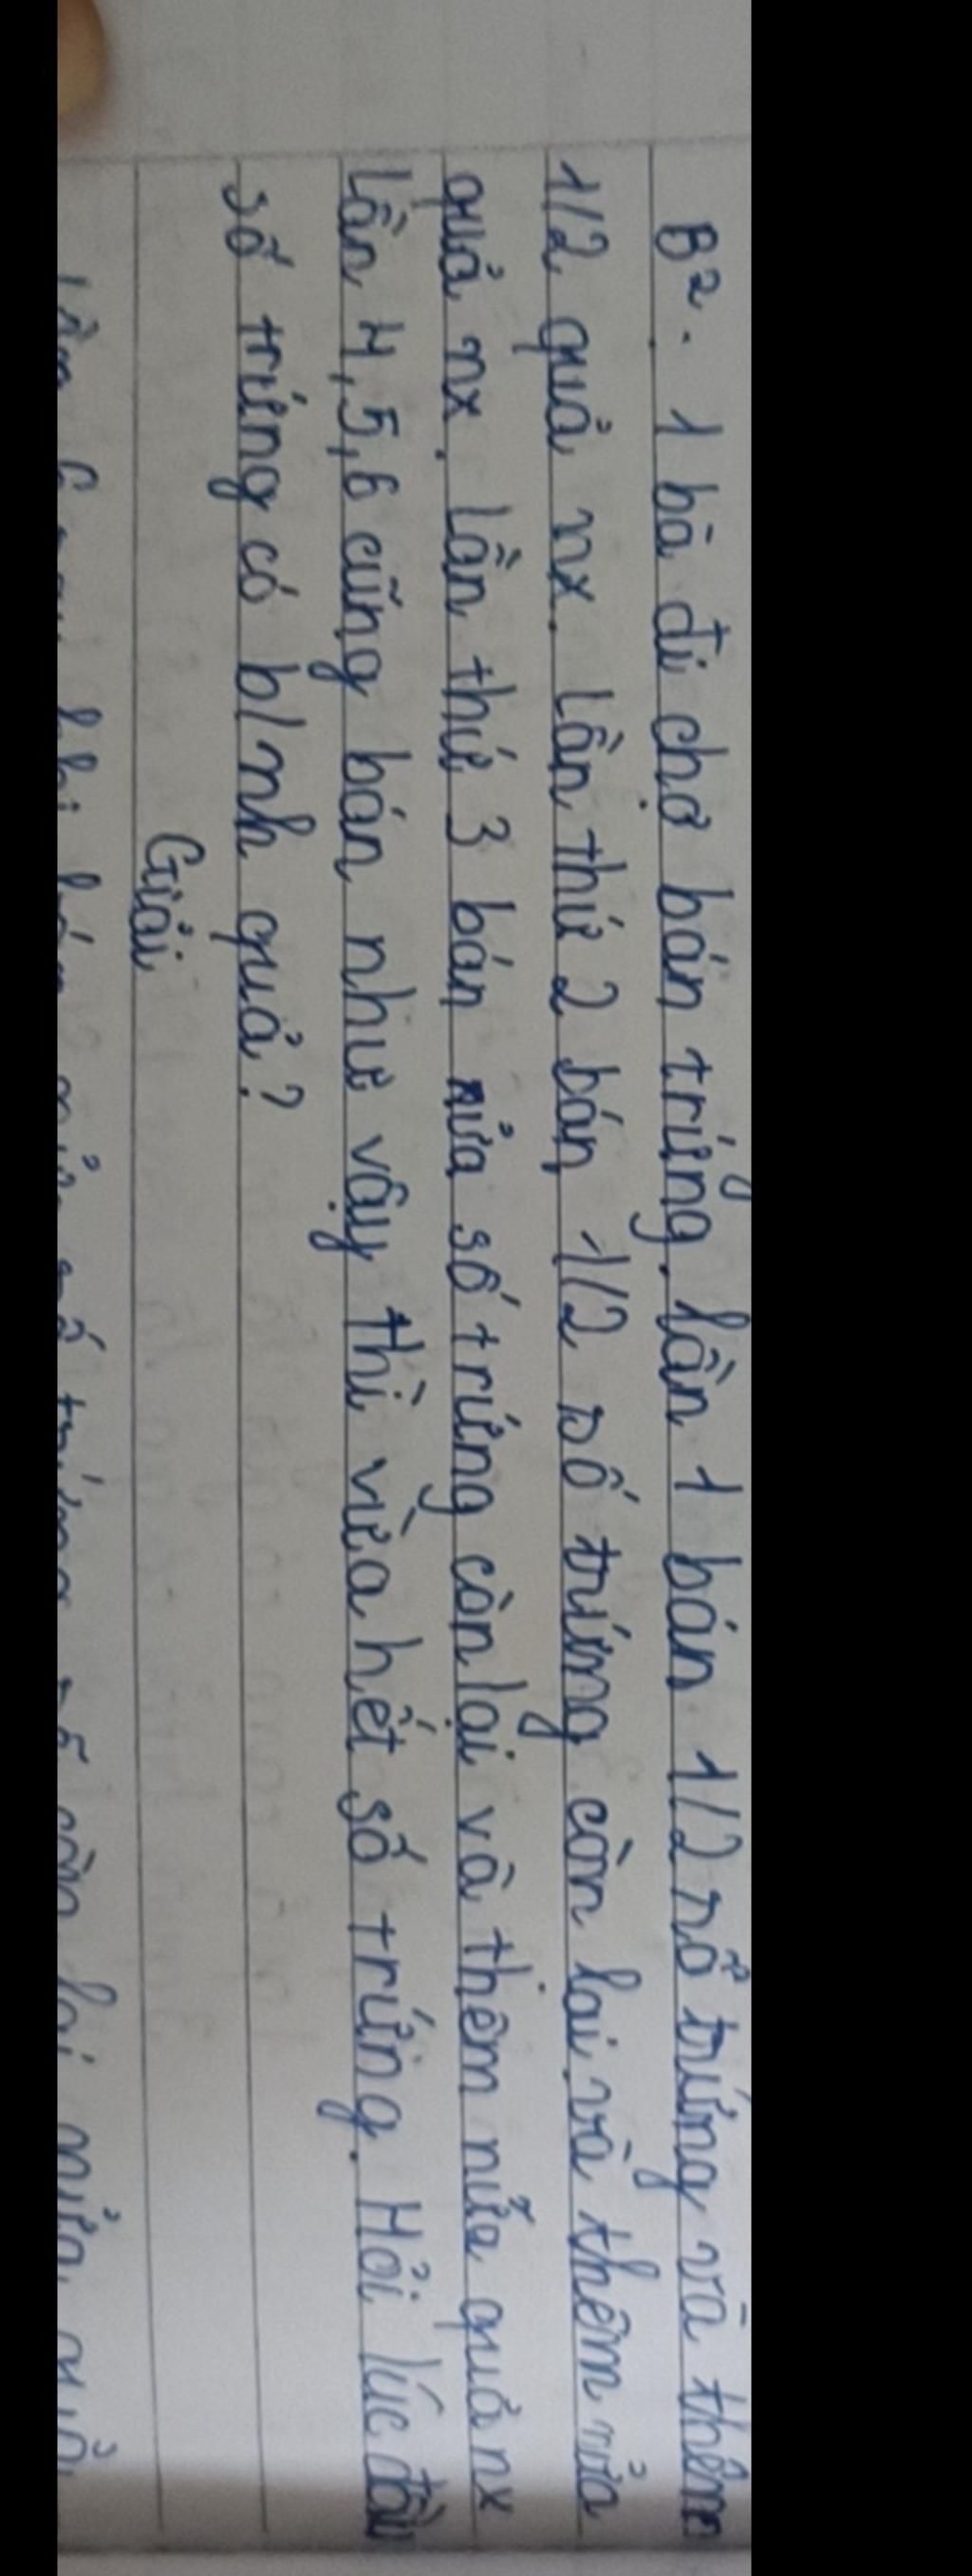 B2. 1 bà đi chợ bán trứng. Lần 1 bán 1/2 rổ trứng và thêm
1/2 quả nx. Lần thứ 2 bán 1/2 số trứng còn lại và thêm nửa
quả nx. Lần thứ 3 bán nửa số trứng còn lại và thêm nửa quả nx
Lần 4,5,6 cũng bán như vậy thì vừa hết số trứng. Hỏi lúc đầu
số trứng có b/nh quả?
Giải